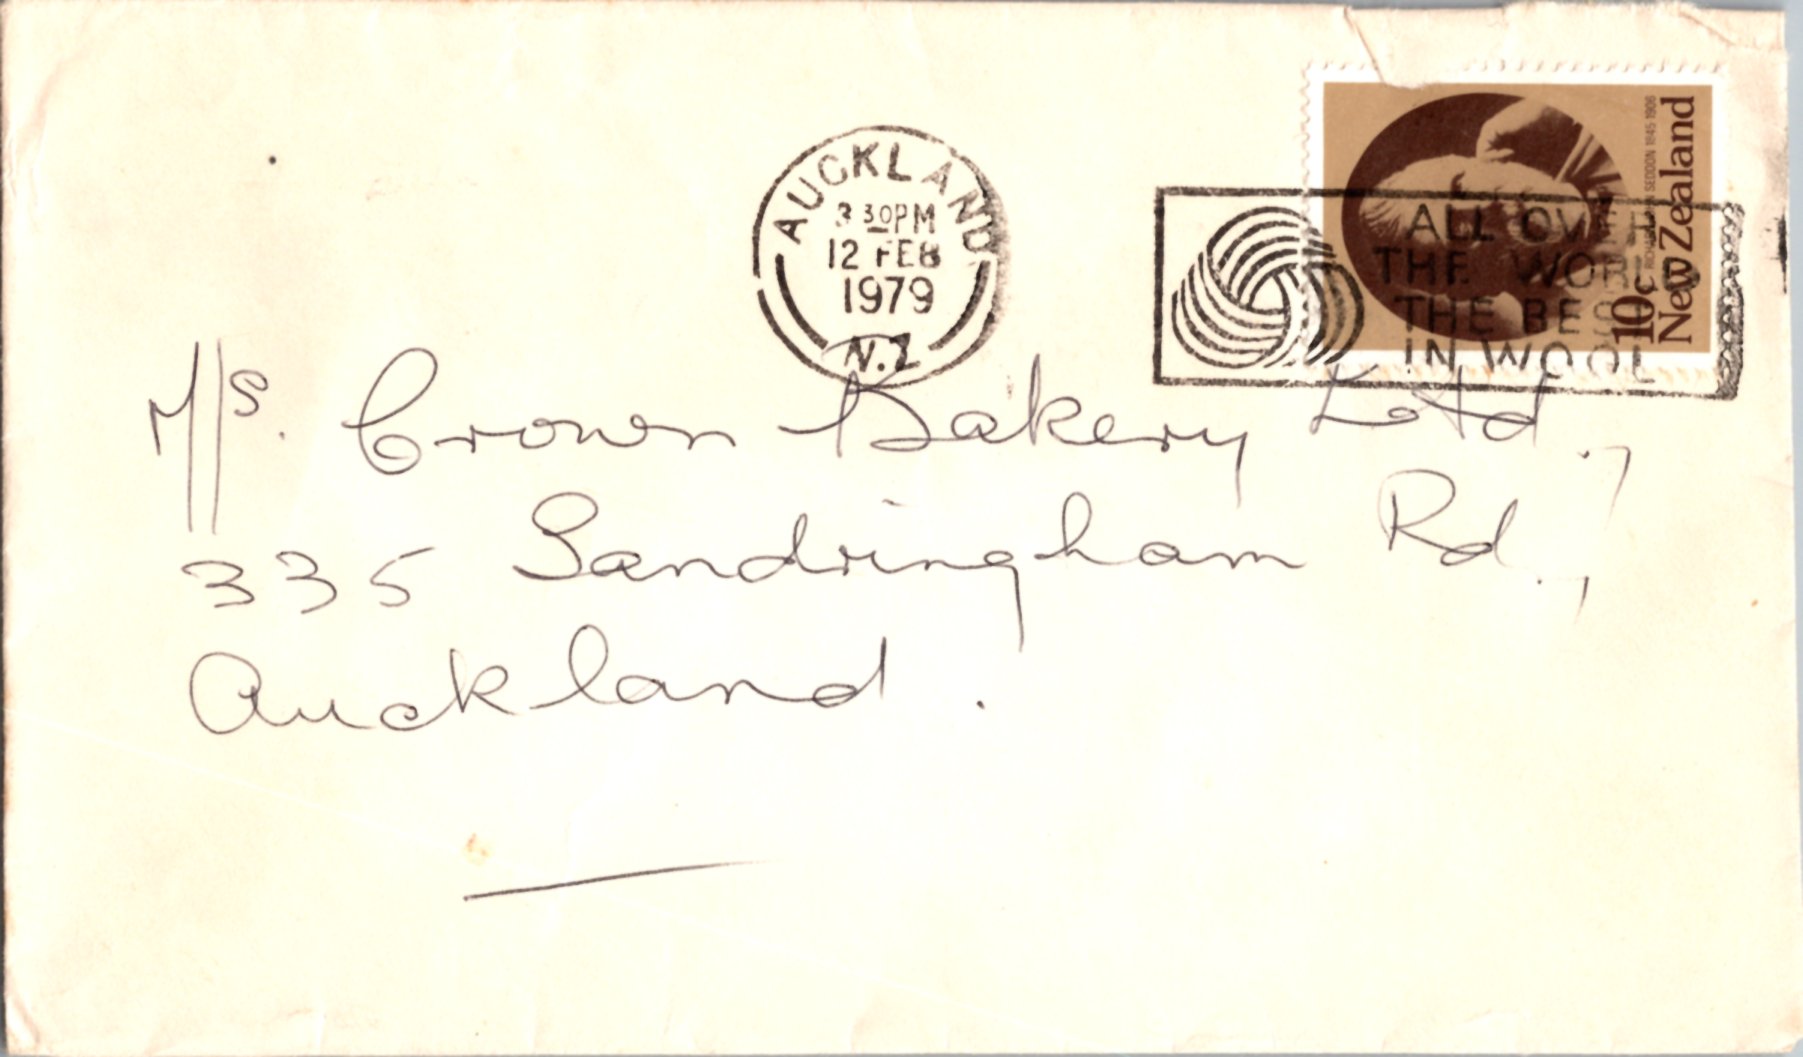 AUCKLAND
3 30PM
12 FEB
1979
N.Z
ALL OVER
THE WORLD
THE BEST
IN WOOL
SEDDON 1845 1906
10c
New Zealand
M/s. Crown Bakery Ltd.,
335 Sandringham Rd.,
Auckland.